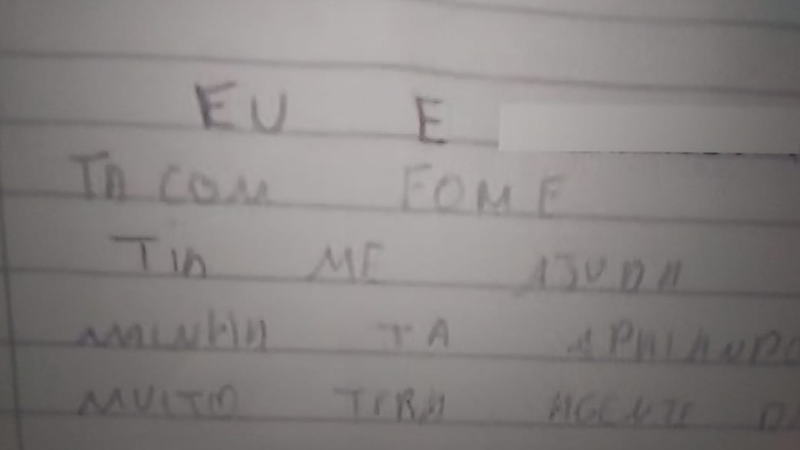 EU E
TA COM FOME
TIA ME AJUDA
MINHA TA APAIANDO
MUITO TIRA AGENTE DA